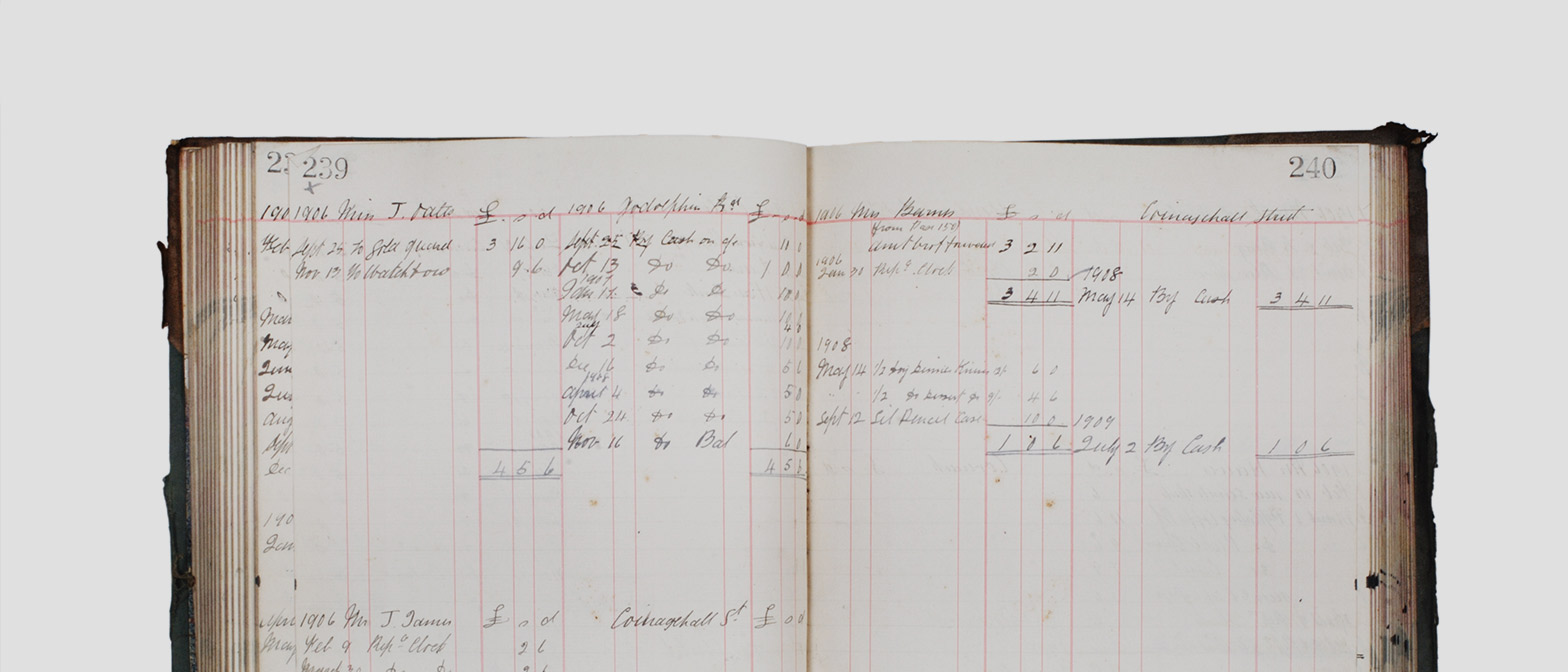 239
1906 Miss J. Oates £ s d 1906 Godolphin Rd £ s d
Sept 25 To Gold guard 3 16 0 Sept 25 By Cash on a/c 10 0
Nov 13 9 6 Oct 13 Do Do 1 0 0
1907
Jan 12 Do Do 10 0
May 18 Do Do 10 0
July 4 6
Oct 2 Do Do 10 0
Dec 16 Do Do 5 0
1908
April 4 Do Do 5 0
Oct 24 Do Do 5 0
Nov 16 Do Bal 6 0
4 5 6 4 5 6
1906 Mr J. James £ s d Coinagehall St £ s d
Feb 9 Repg Clock 2 6
240
1906 Mrs Barnes £ s d Coinagehall Street
(from Page 150)
Amt brot forward 3 2 11
1906
Jan 30 Repg Clock 2 0 1908
3 4 11 May 14 By Cash 3 4 11
1908
May 14 1/2 doz Dinner Knives 6 0
1/2 Do Dessert Do 9/- 4 6
Sept 12 Sil Pencil Case 10 0 1909
1 0 6 July 2 By Cash 1 0 6
23
190
Feb
Mar
May
Aug
Sept
Dec
190
Jan
May